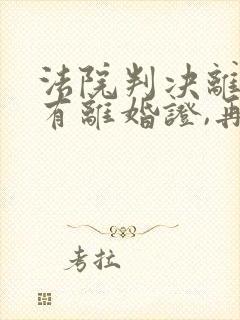 法院判決離
有離婚證,再
考拉